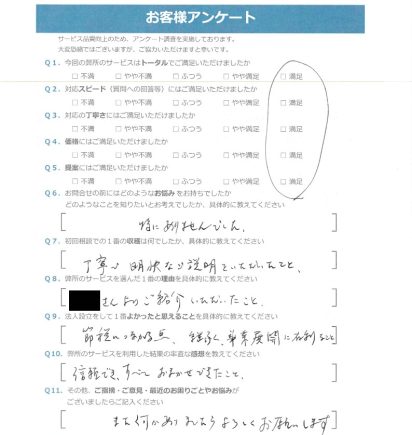 お客様アンケート
サービス品質向上のため、アンケート調査を実施しております。
大変恐縮ではございますが、ご協力いただけますと幸いです。
Q1. 今回の弊所のサービスはトータルでご満足いただけましたか
□ 不満 □ やや不満 □ ふつう □ やや満足 □ 満足
Q2. 対応スピード（質問への回答等）にはご満足いただけましたか
□ 不満 □ やや不満 □ ふつう □ やや満足 □ 満足
Q3. 対応の丁寧さにはご満足いただけましたか
□ 不満 □ やや不満 □ ふつう □ やや満足 □ 満足
Q4. 価格にはご満足いただけましたか
□ 不満 □ やや不満 □ ふつう □ やや満足 □ 満足
Q5. 提案にはご満足いただけましたか
□ 不満 □ やや不満 □ ふつう □ やや満足 □ 満足
Q6. お問合せの前にはどのようなお悩みをお持ちでしたか
どのようなことを知りたいとお考えでしたか、具体的に教えてください
特にありませんでした。
Q7. 初回相談での1番の収穫は何でしたか、具体的に教えてください
丁寧かつ明快なご説明をいただいたこと。
Q8. 弊所のサービスを選んだ1番の理由を具体的に教えてください
さんよりご紹介いただいたこと。
Q9. 法人設立をして1番よかったと思えることを具体的に教えてください
節税につながる点、事業展開に有利なこと
Q10. 弊所のサービスを利用した結果の率直な感想を教えてください
信頼でき、すべておまかせできたこと。
Q11. その他、ご指摘・ご意見・最近のお困りごとやお悩みが
ございましたらご記入ください
また何かありましたらよろしくお願いします